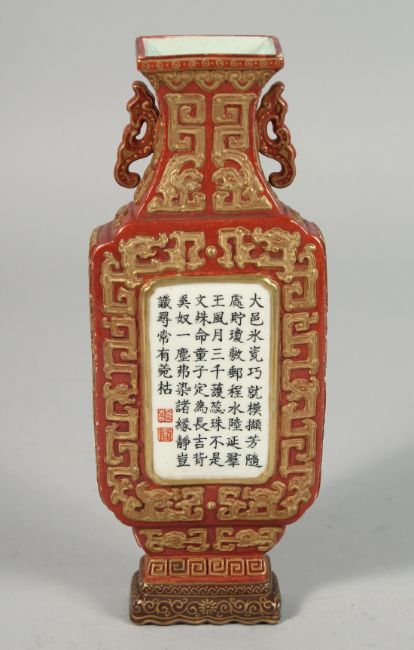 大邑冰瓷巧就模擷芳隨
處貯瓊敷郵程水陸延羣
王風月三千護蕊珠不是
文殊命童子定為長吉背
奚奴一塵弗染諸緣靜豈
識尋常有菀枯